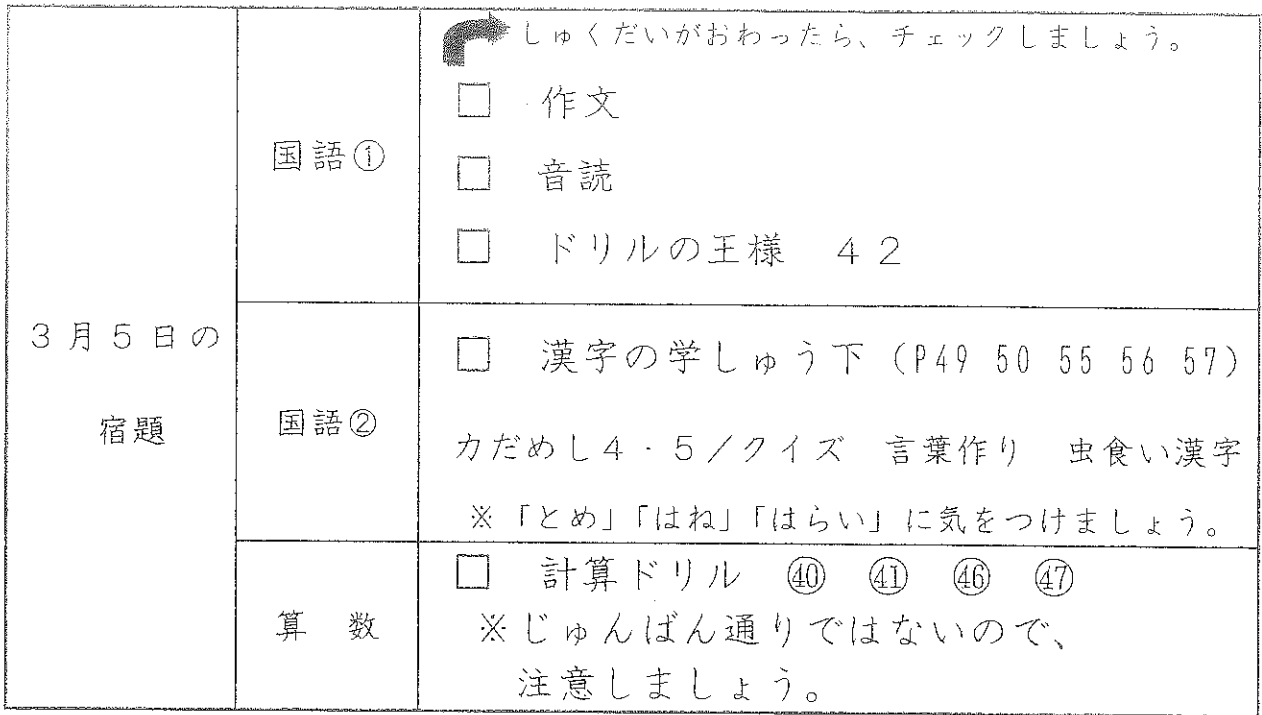 3月5日の
宿題
国語①
しゅくだいがおわったら、チェックしましょう。
□ 作文
□ 音読
□ ドリルの王様 42
国語②
□ 漢字の学しゅう下 (P49 50 55 56 57)
力だめし4・5/クイズ 言葉作り 虫食い漢字
※「とめ」「はね」「はらい」に気をつけましょう。
算 数
□ 計算ドリル ㊵ ㊶ ㊻ ㊼
※じゅんばん通りではないので、
注意しましょう。